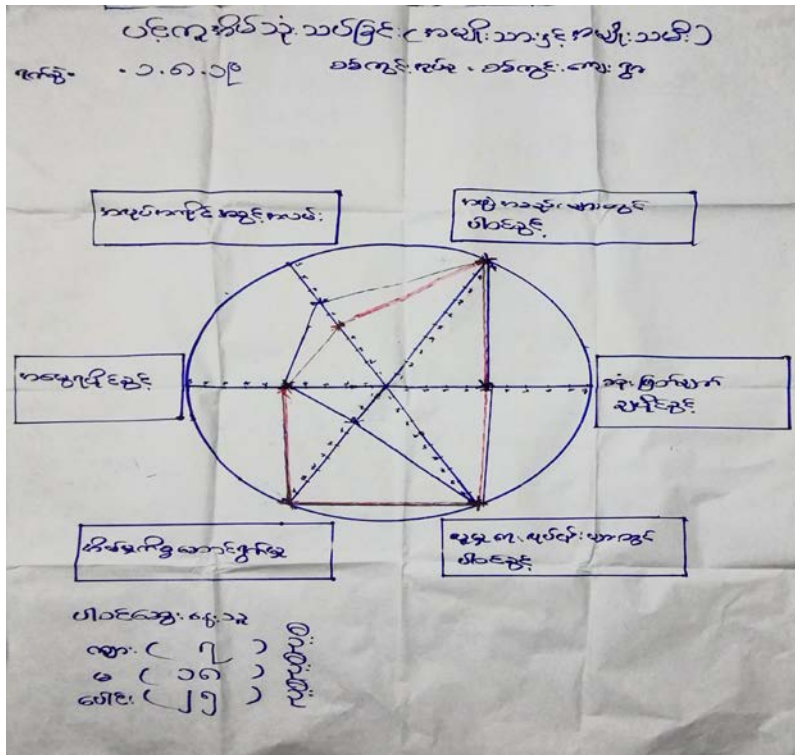 ပင့်ကူအိမ်သုံးသပ်ခြင်း (အမျိုးသားနှင့် အမျိုးသမီး)
ရက်စွဲ- ၁.၆.၁၉
အလုပ်အကိုင် အခွင့်အလမ်း
အဖွဲ့အစည်းများတွင်
ပါဝင်ခွင့်
အမွေရပိုင်ခွင့်
ဆုံးဖြတ်ချက်
ချပိုင်ခွင့်
အိမ်မှုကိစ္စဆောင်ရွက်မှု
လူမှုရေးလုပ်ငန်းများတွင်
ပါဝင်ခွင့်
ပါဝင်ဆွေးနွေးသူ
ကျား ( ၇ ) ဦး
မ ( ၁၈ ) ဦး
ပေါင်း ( ၂၅ ) ဦး